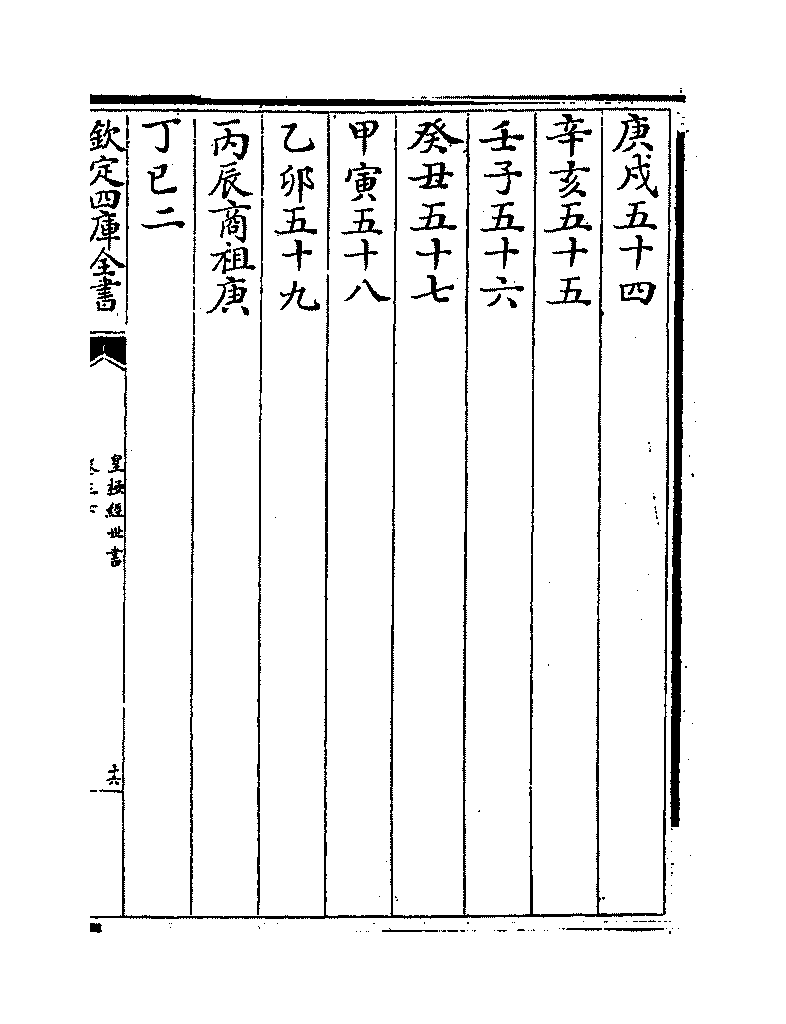 庚戌五十四
辛亥五十五
壬子五十六
癸丑五十七
甲寅五十八
乙卯五十九
丙辰商祖庚
丁巳二
欽定四庫全書
皇極經世書
卷三下
十六